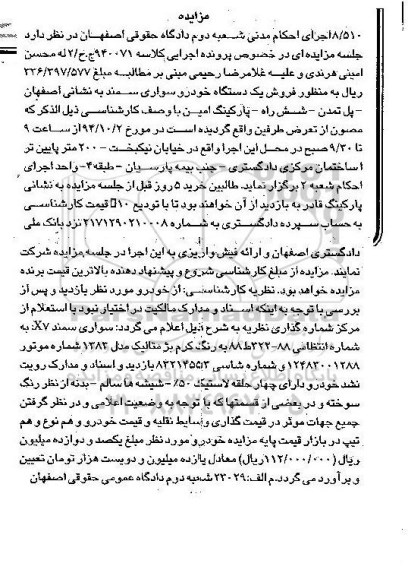 مزایده
۸/۵۱۰اجرای احکام مدنی شعبه دوم دادگاه حقوقی اصفهان در نظر دارد
جلسه مزایده ای در خصوص پرونده اجرایی کلاسه ۹۴۰۰۷۱ج.ح/۲ له محسن
امینی هرندی و علیه غلامرضا رحیمی مبنی بر مطالبه مبلغ ۲۳۶/۳۹۷/۵۷۷
ریال به منظور فروش یک دستگاه خودرو سواری سمند به نشانی اصفهان
- پل تمدن - شش راه - پارکینگ امین با وصف کارشناسی ذیل الذکر که
مصون از تعرض طرفین واقع گردیده است در مورخ ۹۴/۱۰/۲ از ساعت ۹
تا ۹/۳۰ صبح در محل این اجرا واقع در خیابان نیکبخت - ۲۰۰ متر پایین تر
از ساختمان مرکزی دادگستری - جنب بیمه پارسیان - طبقه۴- واحد اجرای
احکام شعبه ۲ برگزار نماید. طالبین خرید ۵ روز قبل از جلسه مزایده به نشانی
پارکینگ قادر به بازدید از آن خواهند بود تا با تودیع ۱۰٪ قیمت کارشناسی
به حساب سپرده دادگستری به شماره ۲۱۷۱۲۹۰۲۱۰۰۰۸ نزد بانک ملی
دادگستری اصفهان و ارائه فیش واریزی به این اجرا در جلسه مزایده شرکت
نمایند. مزایده از مبلغ کارشناسی شروع و پیشنهاد دهنده بالاترین قیمت برنده
مزایده خواهد بود. نظریه کارشناسی: از خودرو مورد نظر بازدید و پس از
بررسی با توجه به اینکه اسناد و مدارک مالکیت در اختیار نبود با استعلام از
مرکز شماره گذاری نظریه به شرح ذیل اعلام می گردد: سواری سمند X۷: به
شماره انتظامی ۸۸-۳۲۲ط۸۸ به رنگ کرم بژ متالیک مدل ۱۳۸۳ شماره موتور
۱۲۴۸۳۰۰۱۲۸۸ و شماره شاسی ۸۳۲۱۴۵۵۳ بازدید و اسناد و مدارک رویت
نشد خودرو دارای چهار حلقه لاستیک ۵۰٪ - شیشه ها سالم - بدنه از نظر رنگ
سوخته و در بعضی از قسمتها که با توجه به وضعیت اعلامی و در نظر گرفتن
جمیع جهات موثر در قیمت گذاری وسایط نقلیه و قیمت خودرو و هم نوع و هم
تیپ در بازار قیمت پایه مزایده خودرو مورد نظر مبلغ یکصد و دوازده میلیون
ریال (۱۱۲/۰۰۰/۰۰۰ریال) معادل یازده میلیون و دویست هزار تومان تعیین
و برآورد می گردد.م الف: ۲۳۰۲۹ شعبه دوم دادگاه عمومی حقوقی اصفهان